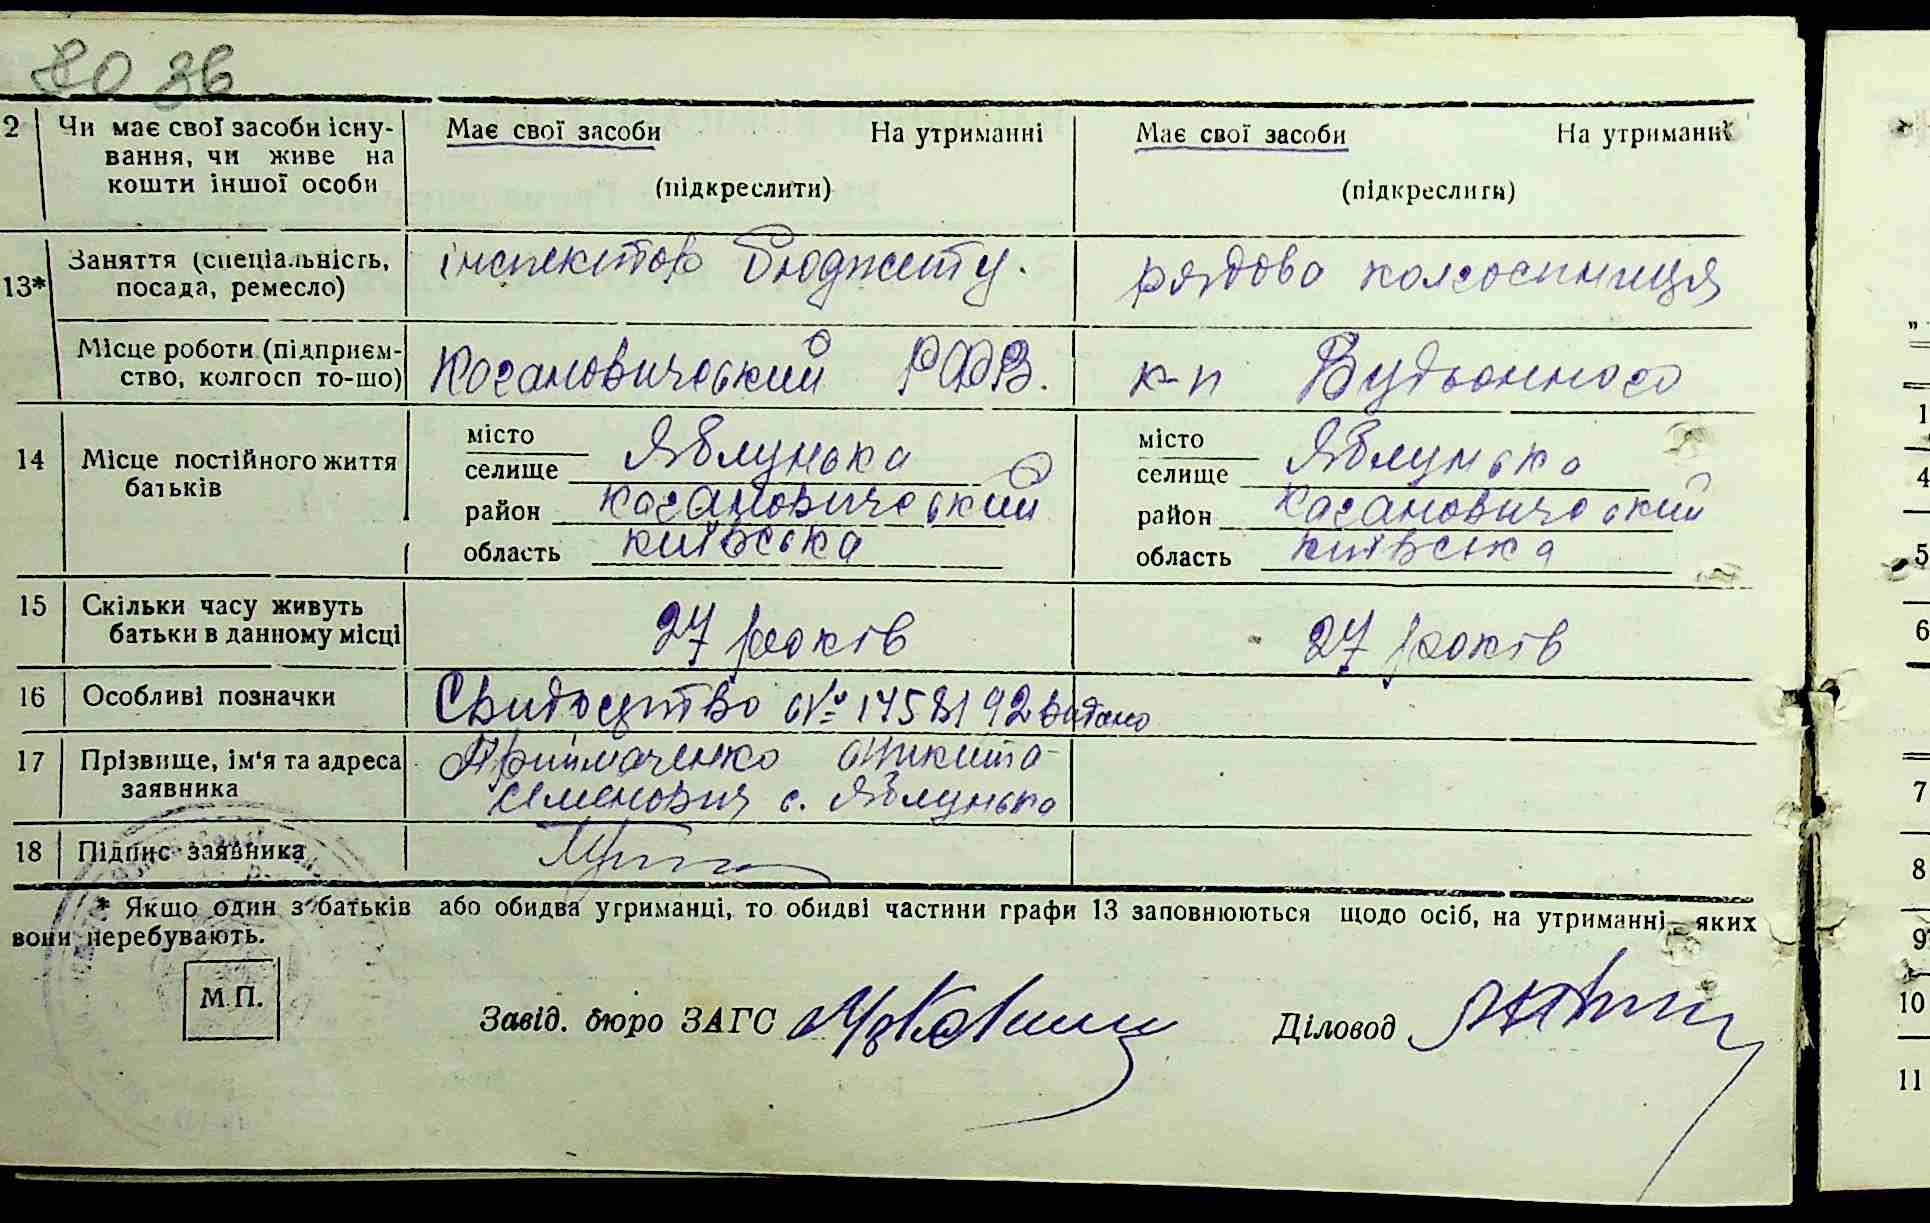 80 зв
2 Чи має свої засоби існу- Має свої засоби На утриманні Має свої засоби На утриманні
вання, чи живе на
кошти іншої особи (підкреслити) (підкреслити)
13* Заняття (спеціальність, інспектор бюджету. рядова колгоспниця
посада, ремесло)
Місце роботи (підприєм- Кагановический РФВ. к-п Будьонного
ство, колгосп то-що)
14 Місце постійного життя місто Яблунька місто Яблунька
батьків селище селище
район Кагановичеський район Кагановичеський
область київська область київська
15 Скільки часу живуть 27 років 27 років
батьки в данному місці
16 Особливі позначки Свидоцтво № видано
17 Прізвище, ім'я та адреса Приймаченко Микита
заявника Семенович с. Яблунька
18 Підпис заявника
* Якщо один з батьків або обидва утриманці, то обидві частини графи 13 заповнюються щодо осіб, на утриманні яких
вони перебувають.
М.П.
Завід. бюро ЗАГС Діловод
"
1
4
5
6
7
8
9
10
11